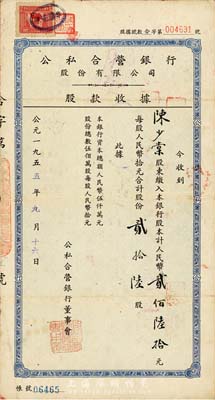 股款收據字第004631號
公私合營銀行
股份有限公司
股款收據
今收到
陳少棠股東繳入本銀行股本計人民幣貳佰陸拾元
每股人民幣拾元合計股份貳拾陸股
此據
本銀行資本總額人民幣伍仟萬元
股份總數伍佰萬股每股人民幣拾元
公私合營銀行董事會
公元一九五五年九月十六日
帳號06465